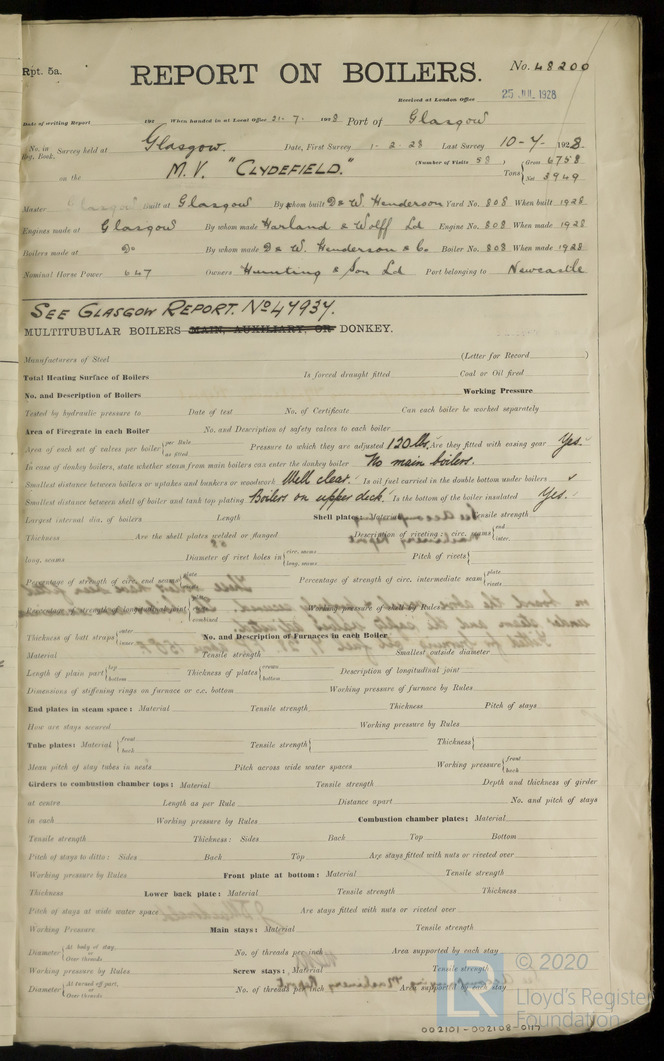 Rpt. 5a.
REPORT ON BOILERS.
No. 48200
Received at London Office
25 JUL 1928
Date of writing Report 192 When handed in at Local Office 21. 7. 1928 Port of Glasgow
No. in Reg. Book. Survey held at Glasgow. Date, First Survey 1. 2. 28 Last Survey 10-7- 1928.
on the M.V. "CLYDEFIELD." (Number of Visits 58 ) Tons { Gross 6758
Net 3949
Master Built at Glasgow By whom built D & W. Henderson Yard No. 808 When built 1928
Engines made at Glasgow By whom made Harland & Wolff Ld Engine No. 808 When made 1928
Boilers made at Do By whom made D & W. Henderson & Co. Boiler No. 808 When made 1928
Nominal Horse Power 647 Owners Hunting & Son Ld Port belonging to Newcastle
SEE GLASGOW REPORT. No 47937.
MULTITUBULAR BOILERS MAIN, AUXILIARY, OR DONKEY.
Manufacturers of Steel (Letter for Record )
Total Heating Surface of Boilers Is forced draught fitted Coal or Oil fired
No. and Description of Boilers Working Pressure
Tested by hydraulic pressure to Date of test No. of Certificate Can each boiler be worked separately
Area of Firegrate in each Boiler No. and Description of safety valves to each boiler
Area of each set of valves per boiler { per Rule
as fitted Pressure to which they are adjusted 120 lbs. Are they fitted with easing gear Yes.
In case of donkey boilers, state whether steam from main boilers can enter the donkey boiler No main boilers.
Smallest distance between boilers or uptakes and bunkers or woodwork Well clear. Is oil fuel carried in the double bottom under boilers
Smallest distance between shell of boiler and tank top plating Boilers on upper deck. Is the bottom of the boiler insulated Yes.
Largest internal dia. of boilers Length Shell plates: Material Tensile strength
Thickness Are the shell plates welded or flanged Description of riveting: circ. seams { end
inter.
long. seams Diameter of rivet holes in { circ. seams
long. seams Pitch of rivets {
Percentage of strength of circ. end seams { plate Percentage of strength of circ. intermediate seam { plate
rivets
Percentage of strength of longitudinal joint { combined Working pressure of shell by Rules
Thickness of butt straps { outer
inner No. and Description of Furnaces in each Boiler
Material Tensile strength Smallest outside diameter
Length of plain part { top
bottom Thickness of plates { crown
bottom Description of longitudinal joint
Dimensions of stiffening rings on furnace or c.c. bottom Working pressure of furnace by Rules
End plates in steam space: Material Tensile strength Thickness Pitch of stays
How are stays secured Working pressure by Rules
Tube plates: Material { front
back Tensile strength } Thickness {
Mean pitch of stay tubes in nests Pitch across wide water spaces Working pressure { front
back
Girders to combustion chamber tops: Material Tensile strength Depth and thickness of girder
at centre Length as per Rule Distance apart No. and pitch of stays
in each Working pressure by Rules Combustion chamber plates: Material
Tensile strength Thickness: Sides Back Top Bottom
Pitch of stays to ditto: Sides Back Top Are stays fitted with nuts or riveted over
Working pressure by Rules Front plate at bottom: Material Tensile strength
Thickness Lower back plate: Material Tensile strength Thickness
Pitch of stays at wide water space Are stays fitted with nuts or riveted over
Working Pressure Main stays: Material Tensile strength
Diameter { At body of stay,
or
Over threads No. of threads per inch Area supported by each stay
Working pressure by Rules Screw stays: Material Tensile strength
Diameter { At turned off part,
or
Over threads No. of threads per inch Area supported by each stay
LR © 2020
Lloyd's Register
Foundation
002101-002108-0117